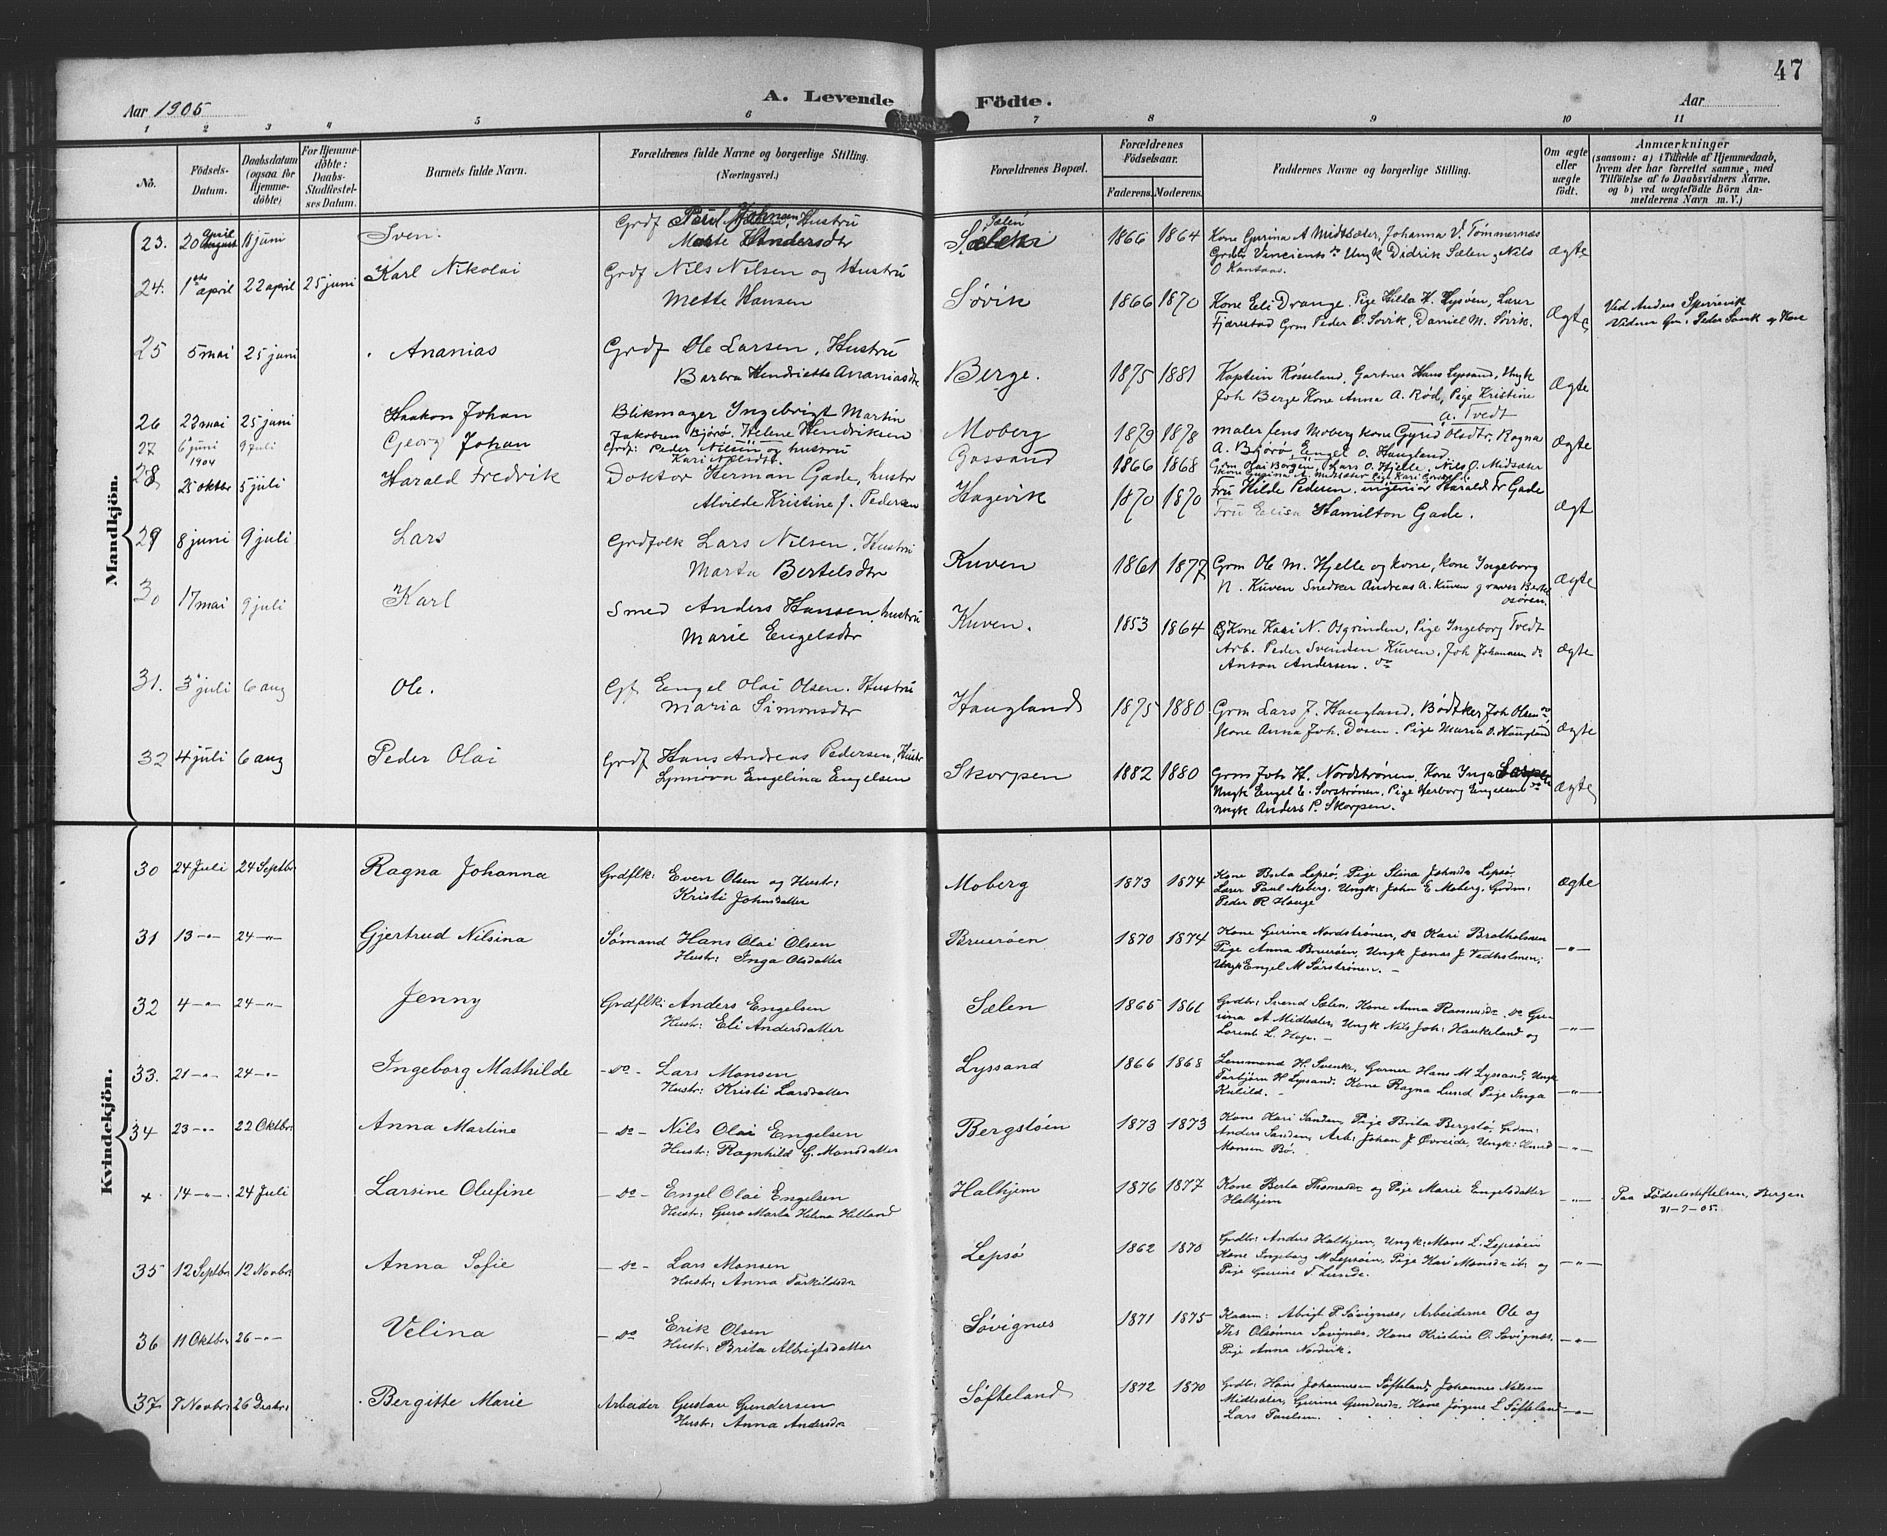 47
Aar 1905
A. Levende Födte.
Aar
1 2 3 4 5 6 7 8 9 10 11
No.
Födsels-Datum.
Daabsdatum (ogsaa for Hjemme-döbte)
For Hjemme-döbte: Daabs-Stadfæstel-ses Datum.
Barnets fulde Navn.
Forældrenes fulde Navne og borgerlige Stilling. (Næringsvei.)
Forældrenes Bopæl.
Forældrenes Födselsaar.
Faderens. Moderens.
Faddernes Navne og borgerlige Stilling.
Om ægte eller uægte födt.
Anmærkninger
(saasom: a) i Tilfælde af Hjemmedaab, hvem der har forrettet samme, med Tilföielse af to Daabsvidners Navne, og b) ved uegtefödte Börn Anmelderens Navn m. V.)
Mandkjön.
23. 20 april 18 juni Sven. Grdf Johnsen, Hustru Sælen 1866 1864 Kone Gurina A Midtsæter, Johanna V. Tømmernæs
Marte Andersdtr Ungk Didrik Sælen, Nils ægte
24. 1ste april 22 april 25 juni Karl Nikolai Grdf Nils Nilsen og Hustru
Mette Hansen Søvik 1866 1870 Kone Eli Drange. Pige Hilda H. Lysøen, Lærer ægte Ved Anders
Fjærestad Grm Peder O. Søvik, Daniel M. Søvik.
25 5 mai 25 juni Ananias Grdf Ole Larsen, Hustru
Barbra Henriette Ananiasdtr Berge. 1875 1881 Kaptein Røseland, Gartner Hans Lyssand, Ungk ægte
Joh Berge Kone Anna A. Rød, Pige Kristine
A. Tvedt
26 22 mai 25 juni Haakon Johan Blikmager Ingebrigt Martin
Jakobsen Bjørø. Helene Hendriksen Moberg 1879 1878 maler Jens Moberg kone Gyrid Olsdtr, Ragna ægte
A. Bjørø, Engel O. Haugland.
27 6 juni 9 juli Georg Johan Grdf: Peder Nilsen og hustru 1866 1868 Grm Olai Borgen, Lars O. Hjelle, Nils O. Midsæter
28 1904 25 oktbr 5 juli Harald Fredrik Doktor Herman Gade, hustr
Alvilde Kristine J. Pedersen Hagevik 1870 1870 Fru Hilde Pedersen. ingeniør Harald Fr Gade ægt
Fru Elisa Hamilton Gade.
29 8 juni 9 juli Lars Grdfolk Lars Nilsen. Hustru
Marta Bertelsdtr Kuven 1861 1877 Grm Ole M. Hjelle og kone, kone Ingeborg ægte
N. Kuven Snedker Andreas A. Kuven
30 17 mai 9 juli Karl Smed Anders Hansen, hustru
Marie Engelsdtr Kuven. 1853 1864 Kone Kari N. Osgrinden, Pige Ingeborg Tvedt ægte
Arb. Peder Svendsen Kuven, Joh Johannesen do
Anton Andersen. do
31. 3 juli 6 aug Ole. Engel Olai Olsen. Hustru
Maria Simonsdtr Haugland 1875 1880 Grm Lars J. Haugland, Bødtker Joh Olsen ægte
Kone Anna Joh. Dosen. Pige Maria O. Haugland
32 4 juli 6 aug Peder Olai Grdf Hans Andreas Pedersen, Hustr
Synnøva Engelina Engelsen Skorpen 1882 1880 Grm Joh H. Nordstrønen, Kone Inga ægte
Ungk Engel E. Sørstrønen. Pige Herborg Engelsens
Ungk Anders P. Skorpen.
Kvindekjön.
30 24 Juli 24 Septbr Ragna Johanna Grdflk: Even Olsen og Hustr:
Kristi Johnsdatter Moberg 1873 1874 Kone Brita Lepsø, Pige Stina Johnsd. Lepsø, ægte
Lærer Paul Moberg. Ungk: John E Moberg, Grdm:
Peder R Hauge
31 13 -"- 24 -"- Gjertrud Nilsina Sømand Hans Olai Olsen
Hustr: Inga Olsdatter Bruerøen 1870 1874 Kone Gurina Nordstrønen, do Kari Bratholmen -"-
Pige Anna Bruerøen, Ungk Jonas J Vedholmen,
Ungk Engel M Sørstrønen. -
32 4 -"- 24 -"- Jenny Grdflk: Anders Engelsen
Hustr: Eli Andersdatter Sælen 1865 1861 Grdbr: Svend Sælen, Kone Anna Rasmusdr. do Gu- -"-
rina A Midtsæter, Ungk Nils Joh: Haukeland og
Lorents L. Hope. -
33. 21 -"- 24 -"- Ingeborg Mathilde - do - Lars Monsen
Hustr: Kristi Larsdatter Lyssand 1866 1868 Lensmand H. Svenke, Garner Hans M Lyssand, Ungk -"-
Torbjørn H Lyssand. Kone Ragna Lund Pige Inga
Kulild. -
34 23 -"- 22 Oktbr Anna Martine - do - Nils Olai Engelsen
Hustr: Ragnhild G. Monsdatter Bergstøen 1873 1873 Kone Kari Sanden, Pige Brita Bergstø, Grdm: -"-
Anders Sanden, Arb: Johan J Øvreide, Ungk: Knud
Monsen Bø.
+ 14 -"- 24 Juli Larsine Olufine - do - Engel Olai Engelsen
Hustr: Guro Marta Helena Helland Halhjem 1876 1877 Kone Berta Thomasdr og Pige Marie Engelsdatter -"- Paa Födselsstiftelsen, Bergen
Halhjem 31-7-05.
35 12 Septbr 12 Novbr Anna Sofie - do - Lars Monsen
Hustr: Anna Torkildsdr Lepsø 1862 1870 Grdbr: Anders Halhjem, Ungk: Mons L. Lepsøen -"-
Kone Ingeborg M Lepsøen, Pige Kari Monsdr ib: og
Pige Gurine T. Lunde.
36 11 Oktbr 26 -"- Velina - do - Erik Olsen
Hustr: Brita Albrigtsdatter Søvignæs 1871 1875 Kaarm: Abrigt P Søvignæs, Arbeiderne Ole og -"-
Ths Olsønner Søvignæs, Kone Kristine O. Søvignæs,
Pige Anna Nordvik.
37 7 Novbr: 26 Decbr: Bergitte Marie Arbeider Gustav Gundersen
Hustr: Anna Andersdr Søfteland 1872 1870 Grdbr: Hans Johannesen Søfteland, Johannes Nilsen -"-
Midtsæter, Gurine Gundersdr, Kone Jørgine L Søfteland
Lars Poulsen.